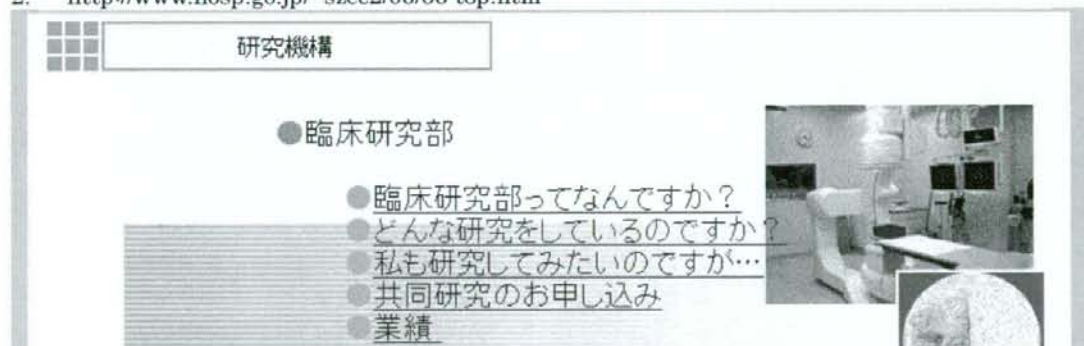 研究機構
●臨床研究部
●臨床研究部ってなんですか？
●どんな研究をしているのですか？
●私も研究してみたいのですが…
●共同研究のお申し込み
●業績